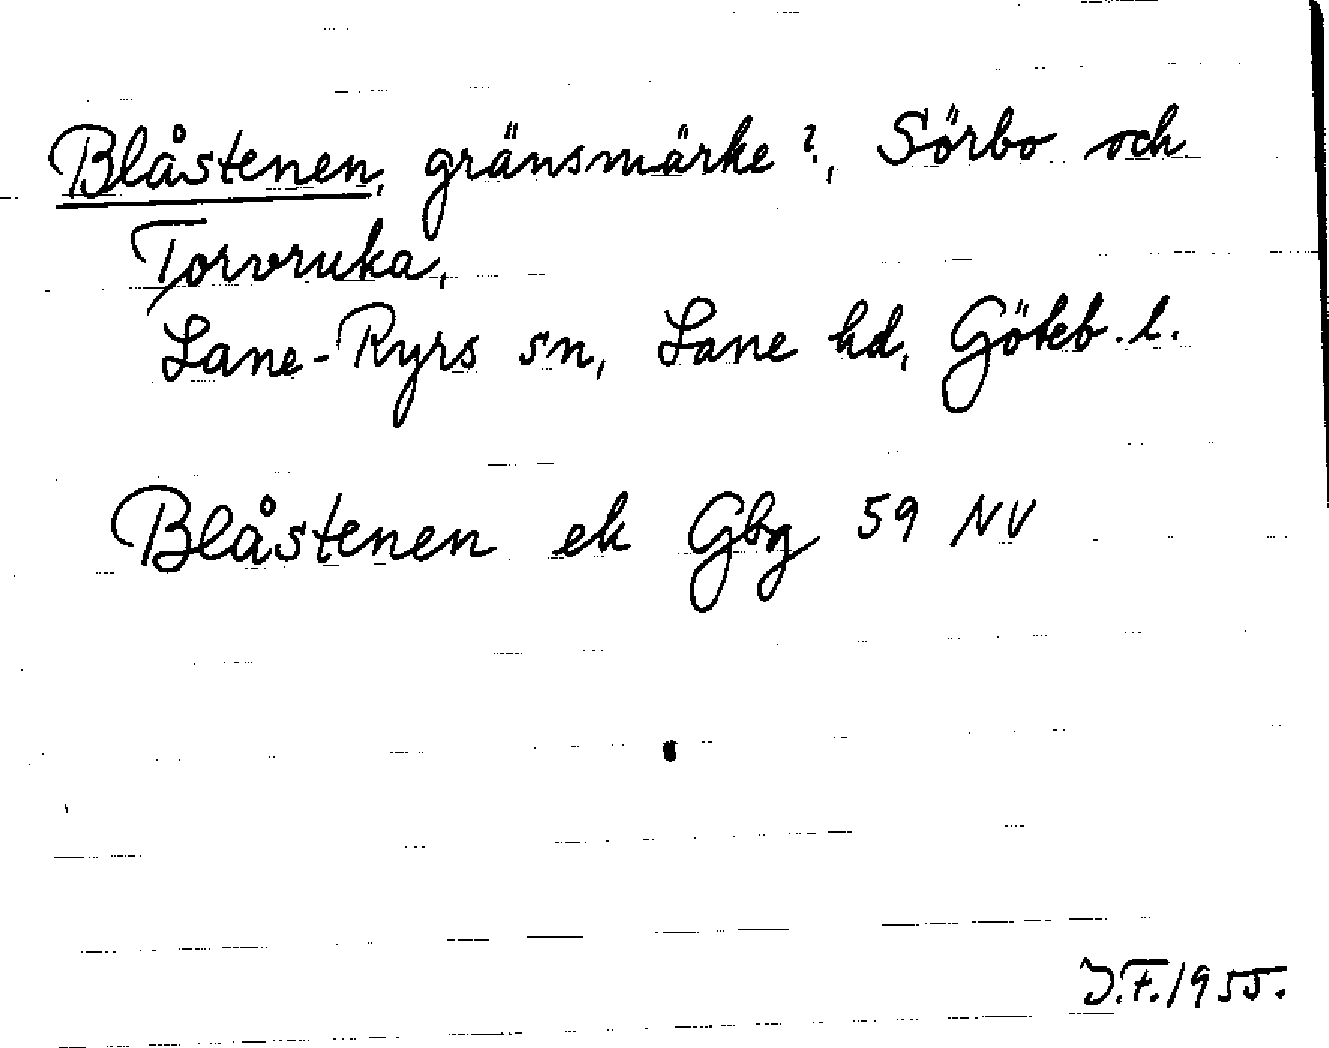 Blåstenen, gränsmärke?, Sörbo och
Torvruka,
Lane-Ryrs sn, Lane hd, Göteb. l.
Blåstenen ek Gbg 59 NV
J.F. 1955.